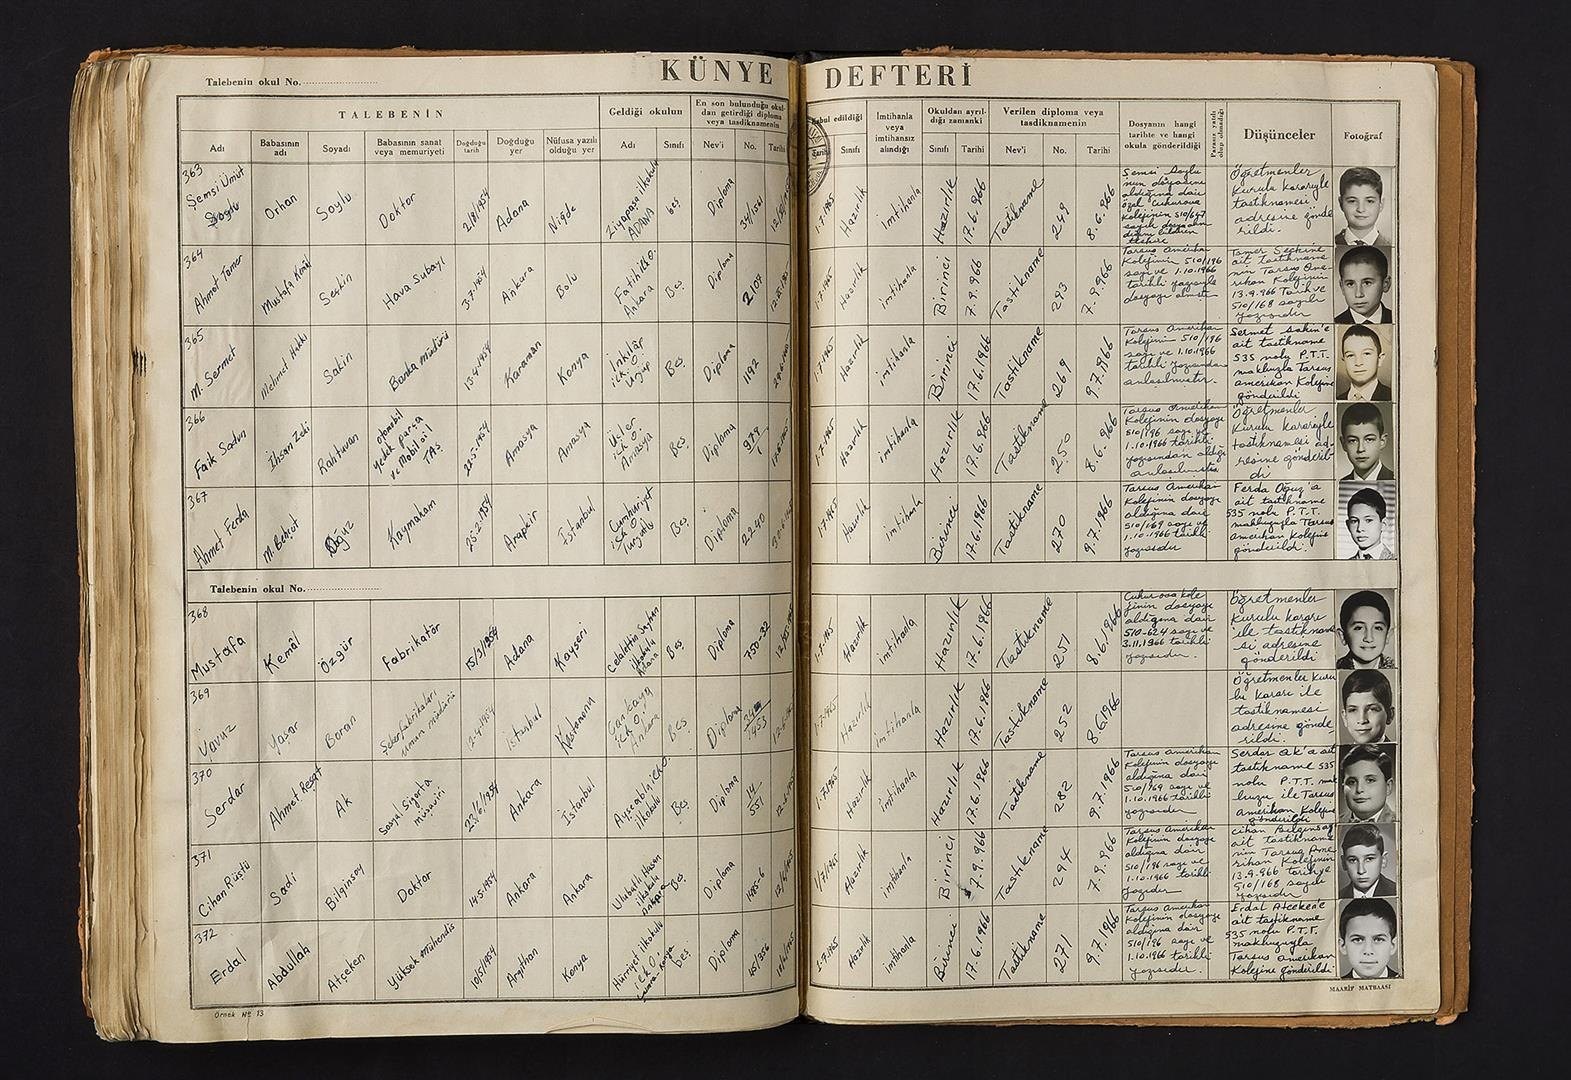 KÜNYE DEFTERİ
Talebenin okul No.
TALEBENİN
Geldiği okulun
En son bulunduğu okuldan getirdiği diploma veya tasdiknamenin
Kabul edildiği
İmtihanla veya imtihansız alındığı
Okuldan ayrıldığı zamanki
Verilen diploma veya tasdiknamenin
Dosyanın hangi tarihte ve hangi okula gönderildiği
Parasız yatılı olup olmadığı
Düşünceler
Fotoğraf
Adı
Babasının adı
Soyadı
Babasının sanat veya memuriyeti
Doğduğu tarih
Doğduğu yer
Nüfusa yazılı olduğu yer
Adı
Sınıfı
Nev'i
No.
Tarihi
Tarihi
Sınıfı
Sınıfı
Tarihi
Nev'i
No.
Tarihi
363
Şemsi Ümit
Orhan
Soylu
Doktor
2/8/1954
Adana
Niğde
Ziyapaşa ilkokulu ADANA
beş
Diploma
1-7-1965
Hazırlık
İmtihanla
Hazırlık
17.6.966
Tastikname
249
8.6.966
Şemsi Soylu
nun dosyasını
aldığına dair
özel Çukurova
Kolejinin 510/647
Öğretmenler
Kurulu kararıyle
tastiknamesi
adresine gönde
rildi.
364
Ahmet Tamer
Mustafa Kemal
Seçkin
Hava Subayı
3.7.1954
Ankara
Bolu
Fatih ilk O. Ankara
Beş
Diploma
2107
1-7-1965
Hazırlık
imtihanla
Birinci
7.9.966
Tastikname
293
7.9.966
Tarsus Amerikan
Kolejinin 510/196
sayı ve 1.10.1966
tarihli yazısıyle
dosyayı almıştır
Tamer Seçkine
ait tastikname
nin Tarsus Ame
rikan Kolejinin
13.9.966 Tarih ve
510/168 sayılı
yazısıdır
365
M. Sermet
Mehmet Hakkı
Sakin
Banka Müdürü
13.4.1954
Karaman
Konya
İnkılâp ilk. O. Ürgüp
Beş
Diploma
1192
1-7-1965
Hazırlık
imtihanla
Birinci
17.6.1966
Tastikname
269
9.7.1966
Tarsus Amerikan
Kolejinin 510/196
sayı ve 1.10.1966
tarihli yazısından
anlaşılmıştır.
Sermet Sakin'e
ait tastikname
535 nolu P.T.T.
makbuzla Tarsus
amerikan Kolejine
gönderildi
366
Faik Sadun
İhsan Zeki
Rahtuvan
otomobil yedek parça ve Mobil oil TAŞ
22.5.1954
Amasya
Amasya
Üçler ilk. O. Amasya
Beş
Diploma
979
1-7-1965
Hazırlık
imtihanla
Hazırlık
17.6.966
Tastikname
250
8.6.966
Tarsus Amerikan
Kolejinin dosyayı
510/196 sayı ve
1.10.1966 tarihli
yazısından aldığı
anlaşılmıştır
Öğretmenler
Kurulu kararıyle
tastiknamesi ad-
resine gönderil-
di
367
Ahmet Ferda
M. Behçet
Oğuz
Kaymakam
25-2-1954
Arapkir
İstanbul
Cumhuriyet ilk. O. Turgutlu
Beş
Diploma
2240
1-7-1965
Hazırlık
İmtihanla
Birinci
17.6.1966
Tastikname
270
9.7.1966
Tarsus Amerikan
Kolejinin dosyayı
aldığına dair
510/169 sayı ve
1.10.1966 tarihli
yazısıdır
Ferda Oğuz'a
ait tastikname
535 nolu P.T.T.
makbuzuyla Tarsus
amerikan Kolejine
gönderildi.
Talebenin okul No.
368
Mustafa
Kemâl
Özgür
Fabrikatör
15/3/1954
Adana
Kayseri
Celalettin Sayhan ilkokulu Ankara
Beş
Diploma
750-32
1-7-1965
Hazırlık
imtihanla
Hazırlık
17.6.1966
Tastikname
251
8.6.1966
Çukurova kole
jinin dosyayı
aldığına dair
510-624 sayı ve
3.11.1966 tarihli
yazısıdır.
Öğretmenler
Kurulu kararı
ile tastikname
si adresine
gönderildi
369
Yavuz
Yaşar
Boran
Şeker fabrikaları Umum müdürü
2-4-1954
İstanbul
Kastamonu
Çankaya ilk O. Ankara
Beş
Diploma
1-7-1965
Hazırlık
imtihanla
Hazırlık
17.6.1966
Tastikname
252
8.6.1966
Öğretmenler Kuru
lu kararı ile
tastiknamesi
adresine gönde
rildi.
370
Serdar
Ahmet Reşat
Ak
Sosyal Sigorta müşaviri
23/6/1954
Ankara
İstanbul
Ayşeabla ilkokulu
Beş
Diploma
14/551
1-7-1965
Hazırlık
imtihanla
Hazırlık
17.6.1966
Tastikname
282
9.7.1966
Tarsus Amerikan
Kolejinin dosyayı
aldığına dair
510/169 sayı ve
1.10.1966 tarihli
yazısıdır
Serdar Ak'a ait
tastikname 535
nolu P.T.T. mak
buzu ile Tarsus
Amerikan Kolejine
gönderildi
371
Cihan Rüştü
Sadi
Bilginsoy
Doktor
14.5.1954
Ankara
Ankara
Ulubatlı Hasan ilkokulu Ankara
Beş
Diploma
1485-6
1/7/1965
Hazırlık
imtihanla
Birinci
7.9.966
Tastikname
294
7.9.966
Tarsus Amerikan
Kolejinin dosyayı
aldığına dair
510/196 sayı ve
1.10.1966 tarihli
yazısıdır
Cihan Bilginsoy
ait tastikname
nin Tarsus Ame
rikan Kolejinin
13.9.966 tarih ve
510/168 sayılı
yazısıdır
372
Erdal
Abdullah
Atçeken
Yüksek mühendis
10/5/1954
Argıthan
Konya
Hürriyet ilkokulu
beş
Diploma
45/356
1-7-1965
Hazırlık
imtihanla
Birinci
17.6.1966
Tastikname
271
9.7.1966
Tarsus Amerikan
Kolejinin dosyayı
aldığına dair
510/196 sayı ve
1.10.1966 tarihli
yazısıdır.
Erdal Atçeken'e
ait tastikname
535 nolu P.T.T.
makbuzuyla
Tarsus amerikan
Kolejine gönderildi
Örnek No 13
MAARİF MATBAASI